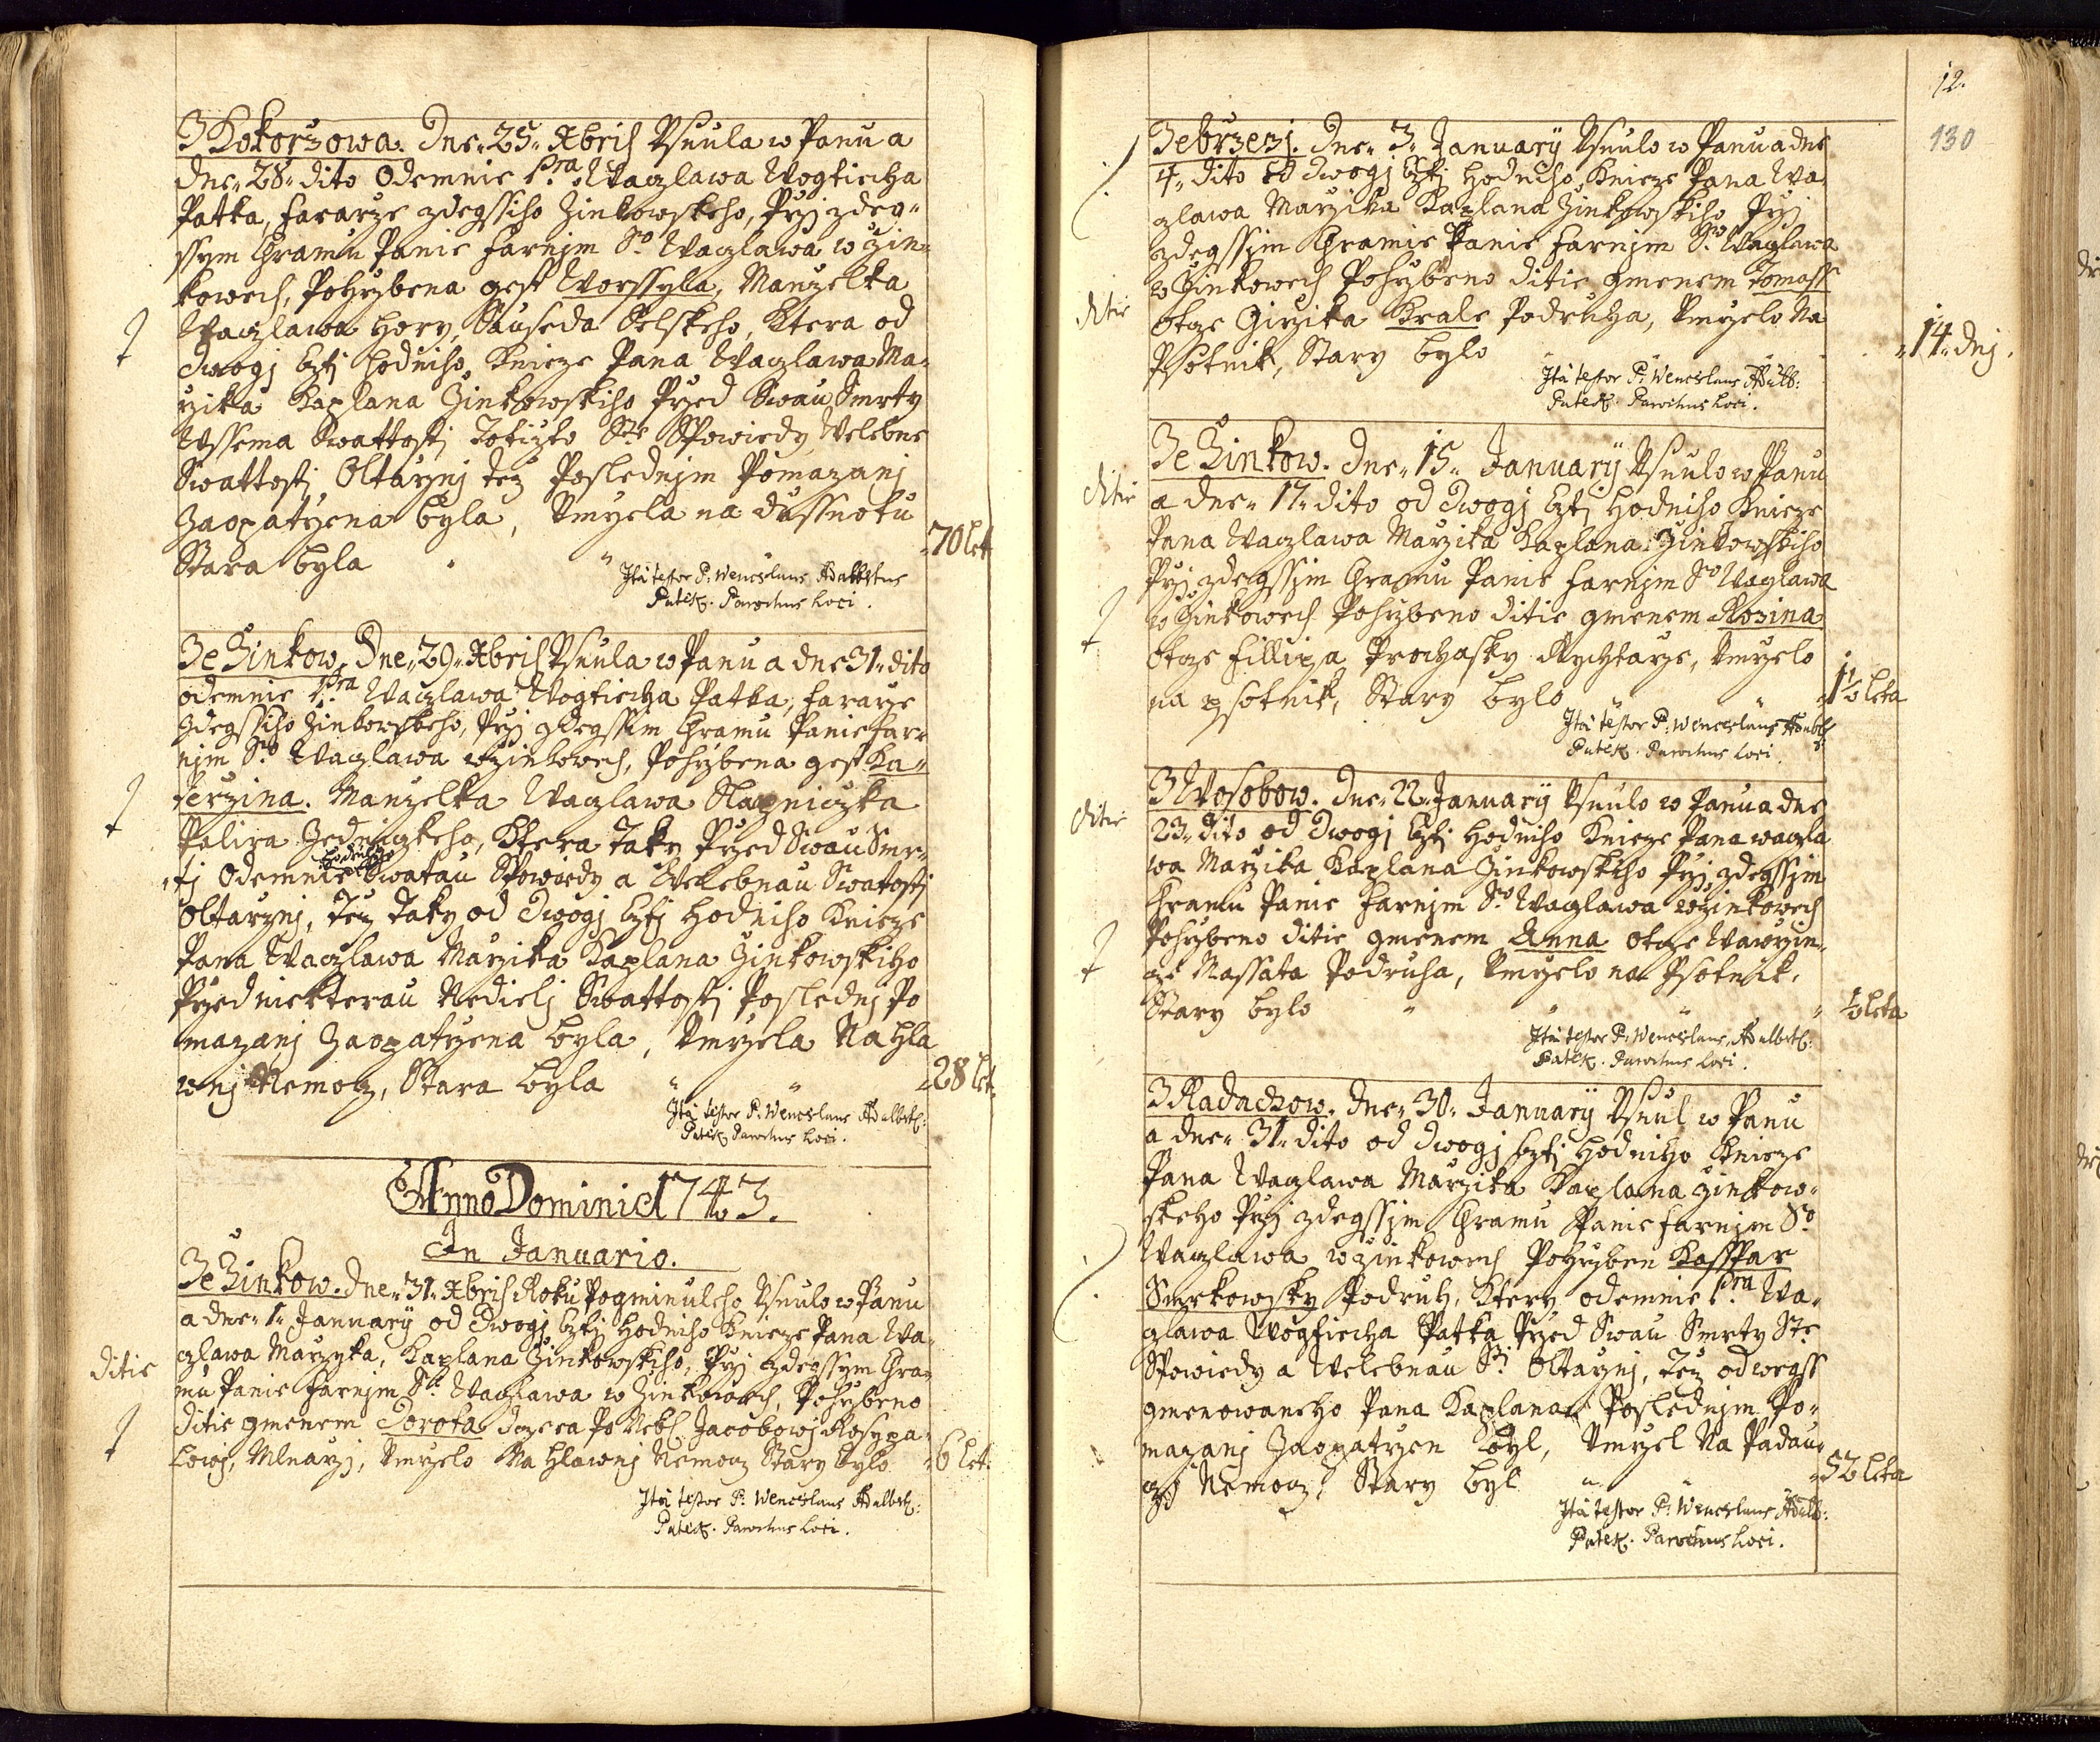 Z Kokorzowa. Dne 25. Xbris Usnula w Panu a
dne 28. dito Odemnie Pra. Waczlawa Wogtiecha
Patka, Fararze zdegssiho Žinkowskeho, Przj zdeg-
ssym Chramu Panie Farnjm So. Waczlawa w Žin-
kowech, Pohrzbena gest Worssyla, Manzelka
Waczlawa Hory, Sauseda Selskeho, Ktera od
dwogj Cztj Hodniho Knieze Pana Waczlawa Ma-
rzika Kaplana Žinkowskiho Przed Swau Smrty
Wssema Swattostj Totizto Ste Spowiedy Welebne
Swattosti Oltarznj tez Poslednjm Pomazanj
Zaopatrzena byla, Umrzela na dussnotu
Stara byla " 70 let
Ita testor P. Wenceslaus Adalbertus
Patek. Parochus Loci.
Ze Žinkow. Dne 29. Xbris Usnula w Panu a dne 31. dito
odemnie Pra Waczlawa Wogtiecha Patka, Fararze
zdegssiho Žinkowskeho, Przj zdegssim Chramu Panie Far-
njm So. Waczlawa w Žinkowech, Pohrzbena gest Ka-
terzina. Manzelka Waczlawa Slapniczka
Palira Zednizkeho, Ktera Taky Przed Swau Smr-
tj Odemnie Swatau Spowiedy a Welebnau Swatostj
Oltarznj, Tez Taky od Dwogj Cztj Hodniho Knieze
Pana Waczlawa Marzika Kaplana Žinkowskiho
Przed niekterau Nedielj Swattostj Poslednj Po
mazanj Zaopatrzena byla, Umrzela Na Hla
wnj Nemocz, Stara byla " " 28 let.
Ita testor P. Wenceslaus Adalbert:
Patek Parochus Loci.
Anno Domini 1743.
In Januario.
Ze Žinkow. Dne 31. Xbris Roku Pogminuleho Usnulo w Panu
a dne 1. January od Dwogj Cztj Hodniho Knieze Pana Wa-
czlawa Marzyka, Kaplana Žinkowskiho, Przj zdegssym Chra-
mu Panie Farnjm St. Waczlawa w Žinkowech, Pohrzbeno
ditie
ditie gmenem Dorota Dczera Po Nebl. Jacobowj Rosypa-
lowj, Mlnarzj, Umrzelo Na Hlawnj Nemocz Stary bylo " 6 let.
Ita testor P. Wenceslaus Adalbert:
Patek. Parochus Loci.
12.
130
Ze Brzezj. Dne 3. January Usnulo w Panu a dne
4. dito od Dwogj Cztj Hodniho Knieze Pana Wa-
czlawa Marzika Kaplana Žinkowskiho Przj
zdegssjm Chramie Panie Farnjm So. Waczlawa
ditie
w Žinkowech Pohrzbeno ditie gmenem Tomass
Otcze Girzika Krale Podruha, Umrzelo Na
Psotnik, Stary bylo " 14. dnj.
Ita testor P. Wenceslaus Adalb:
Patek. Parochus Loci.
Ze Žinkow. Dne 15. January Usnulo w Panu
ditie
a dne 17. dito od Dwogj Cztj Hodniho Knieze
Pana Waczlawa Marzika Kaplana Žinkowskiho
Przj zdegssjm Chramu Panie Farnjm So Waczlawa
w Žinkowech Pohrzbeno ditie gmenem Rozina
Otcze Fillipa Prochasky Rychtarze, Umrzelo
na psotnik, Stary bylo " 1½ leta
Ita testor P. Wenceslaus Adalb:
Patek. Parochus Loci.
Z Wosobow. Dne 22. January Usnulo w Panu a dne
ditie
23. dito od Dwogj Cztj Hodniho Knieze Pana Waczla
wa Marzika Kaplana Žinkowskiho Przj zdegssjm
Chramu Panie Farnjm So. Waczlawa w Žinkowech
Pohrzbeno ditie gmenem Anna Otcze Wawrzin-
cze Massata Podruha, Umrzelo na Psotnik,
Stary bylo " " " ½ leta
Ita testor P. Wenceslaus Adalbert:
Patek. Parochus Loci.
Z Radachow. Dne 30. January Usnul w Panu
a dne 31. dito od Dwogj Cztj Hodniho Knieze
Pana Waczlawa Marzika Kaplana Žinkow-
skeho Przj zdegssjm Chramu Panie Farnjm So
Waczlawa w Žinkowech Pohrzben Kasspar
Smrkowsky Podruh, Ktery odemnie Pra Wa-
czlawa Wogtiecha Patka Przed Swau Smrty Ste
Spowiedy a Welebnau Sti Oltarznj, Tez od wegss
gmenowaneho Pana Kaplana Poslednjm Po-
mazanj Zaopatrzen byl, Umrzel Na Padau-
czj Nemocz, Stary byl " " 52 leta
Ita testor P. Wenceslaus Adalb:
Patek. Parochus Loci.